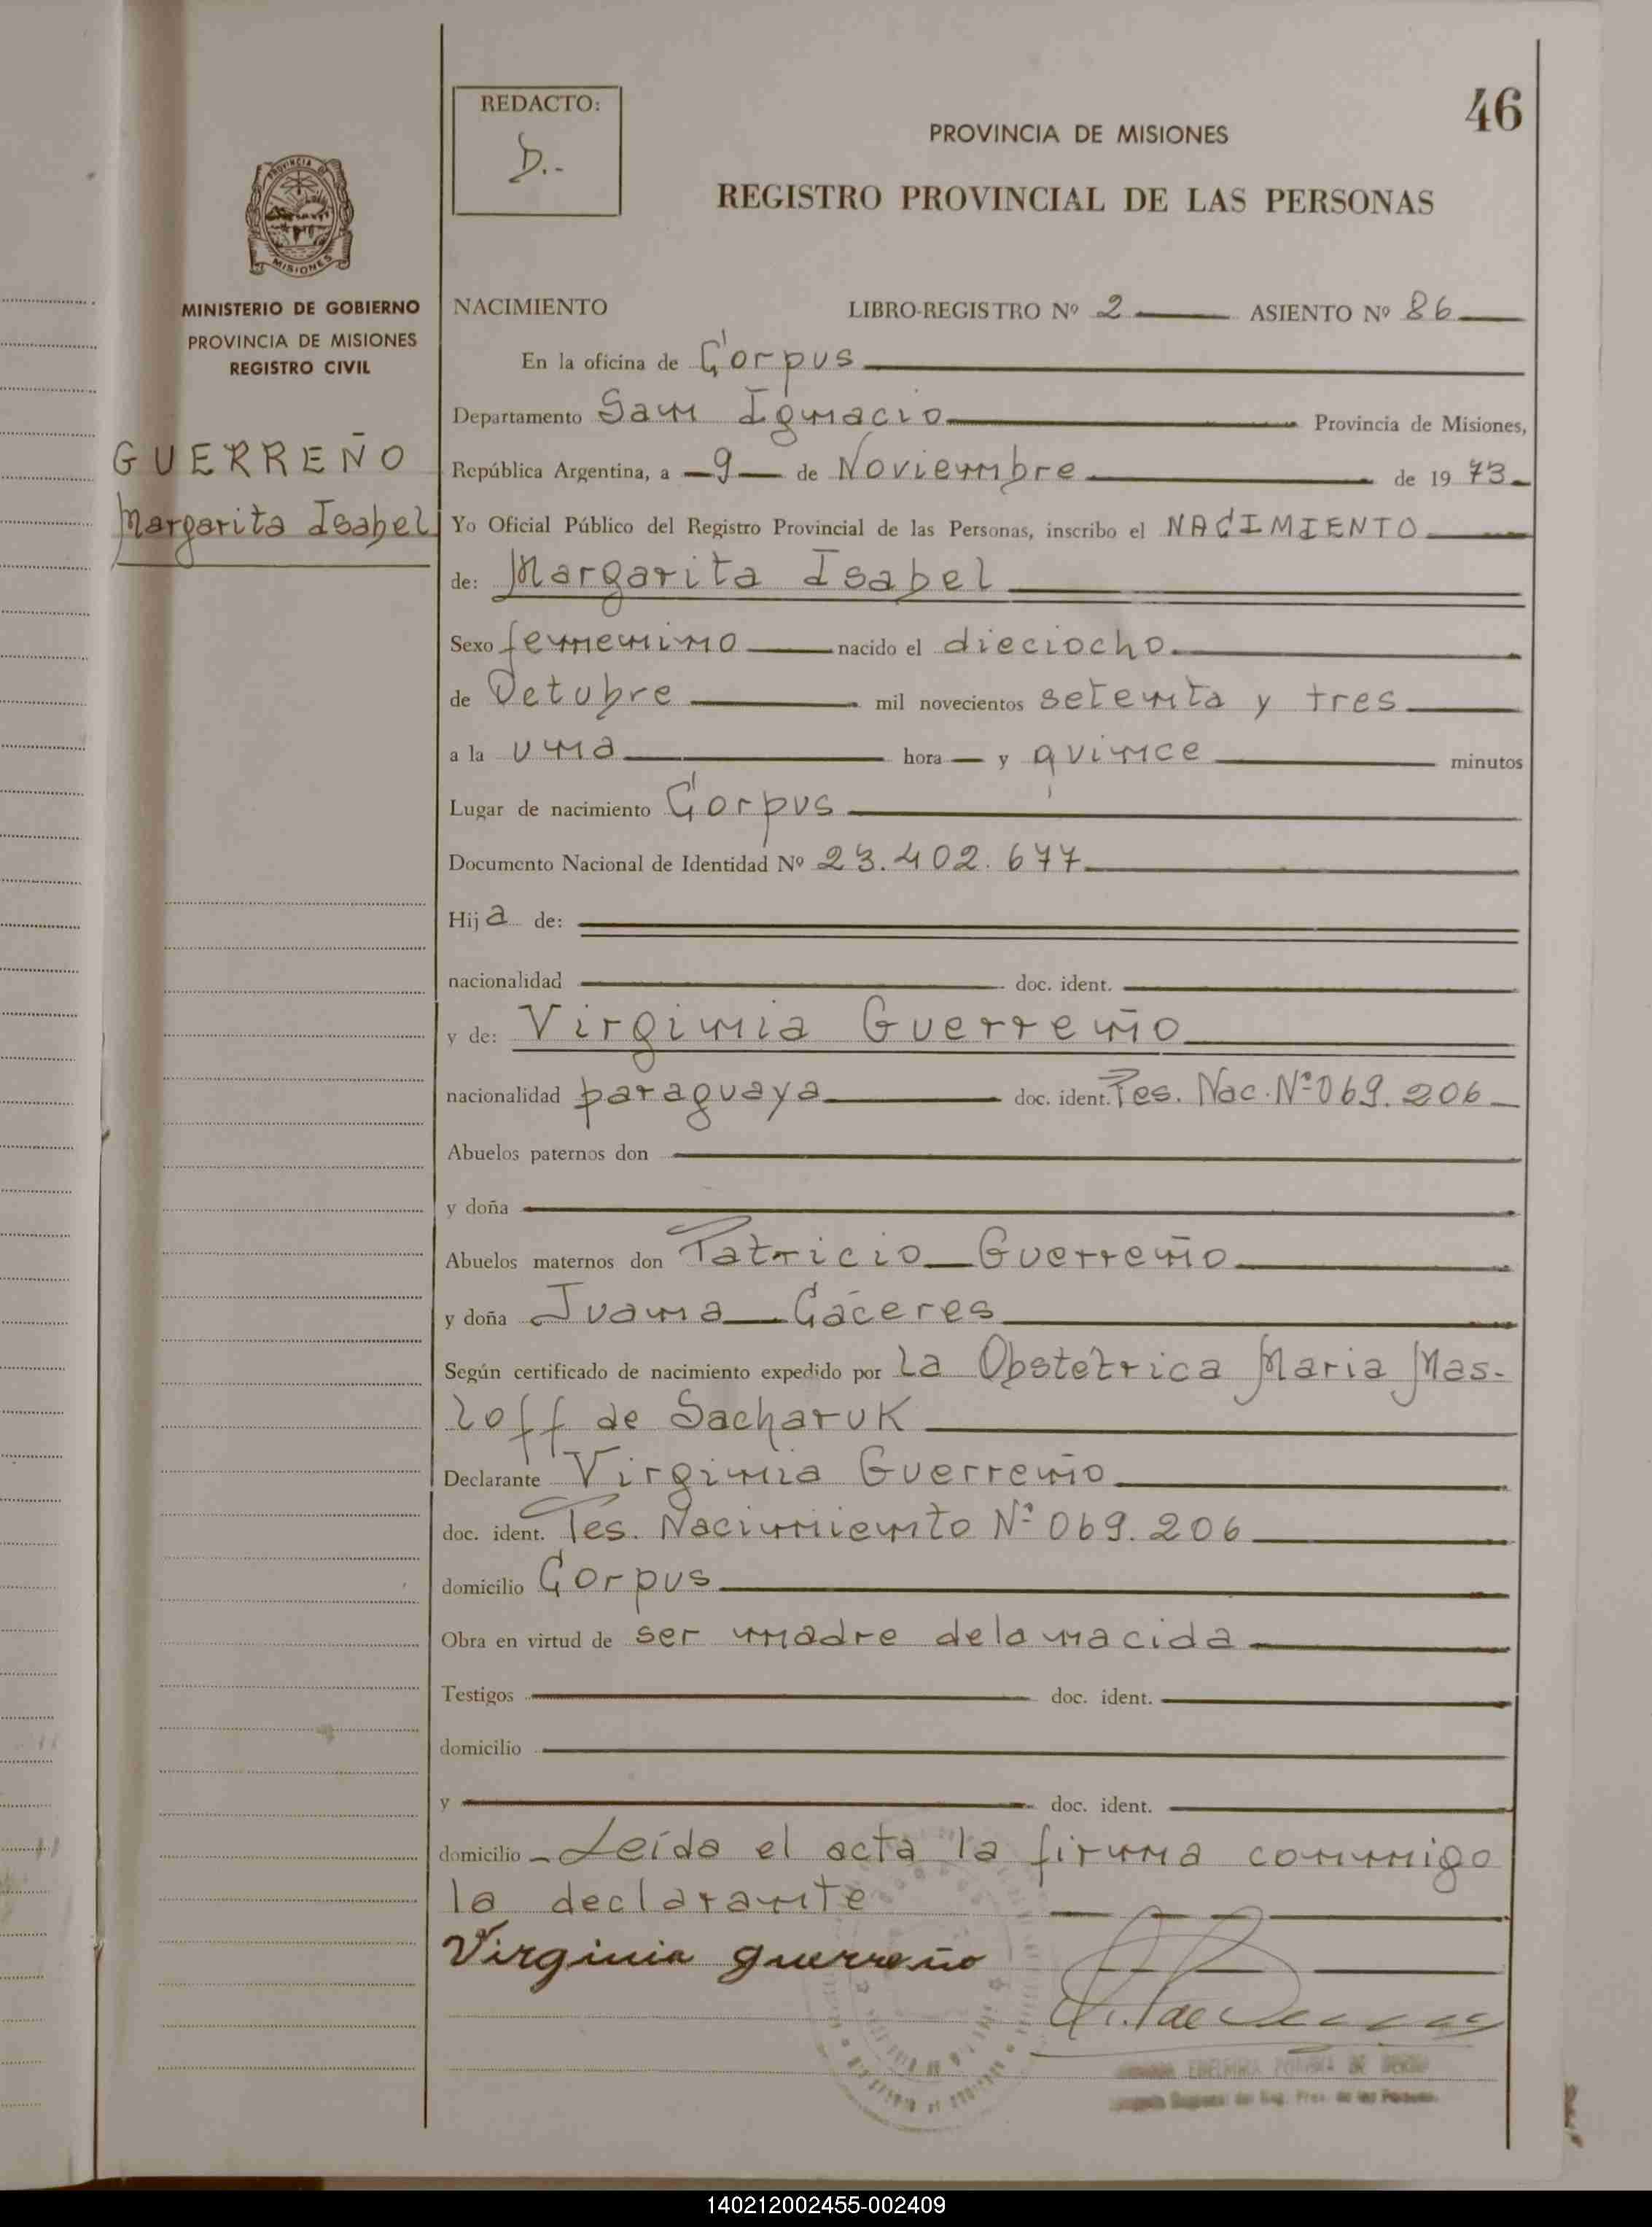 46
REDACTO:
D.-
PROVINCIA DE MISIONES
REGISTRO PROVINCIAL DE LAS PERSONAS
PROVINCIA DE
MISIONES
MINISTERIO DE GOBIERNO
PROVINCIA DE MISIONES
REGISTRO CIVIL
GUERREÑO
Margarita Isabel
NACIMIENTO LIBRO-REGISTRO Nº 2 ASIENTO Nº 86
En la oficina de Corpus
Departamento San Ignacio Provincia de Misiones,
República Argentina, a -9- de Noviembre de 1973.
Yo Oficial Público del Registro Provincial de las Personas, inscribo el NACIMIENTO
de: Margarita Isabel
Sexo femenino nacido el dieciocho
de Octubre mil novecientos setenta y tres
a la una hora y quince minutos
Lugar de nacimiento Corpus
Documento Nacional de Identidad Nº 23.402.677
Hija de:
nacionalidad doc. ident.
y de: Virginia Guerreño
nacionalidad paraguaya doc. ident. Tes. Nac. Nº 069.206
Abuelos paternos don
y doña
Abuelos maternos don Patricio Guerreño
y doña Juana Cáceres
Según certificado de nacimiento expedido por la Obstetrica Maria Mas-
loff de Sacharuk
Declarante Virginia Guerreño
doc. ident. Tes. Nacimiento Nº 069.206
domicilio Corpus
Obra en virtud de ser madre de la nacida
Testigos doc. ident.
domicilio
y doc. ident.
domicilio Leída el acta la firma conmigo
la declarante
Virginia guerreño
140212002455-002409